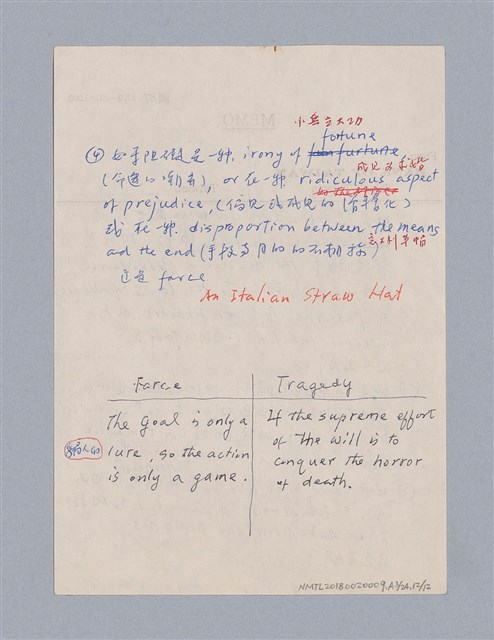 小兵立大功
fortune
(4) 如手阻礙是一种 irony of fortune
成見的
(命運的嘲弄), or 在一种 ridiculous aspect
of prejudice, (偏見或成見的
或 在一种 disproportion between the means
and the end (手段与目的的不相
這是 farce
An Italian Straw Hat
Farce
The goal is only a
lure, so the action
is only a game.
Tragedy
If the supreme effort
of the will is to
conquer the horror
of death.
NMTL20180020009